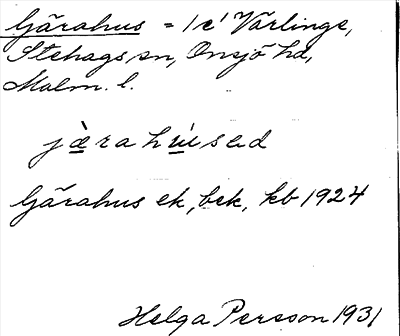 Gärahus = 1/2' Värlinge,
Stehags sn, Onsjö hd,
Malm. l.
jæ̀rahúused
Gärahus ek, bek, kb 1924
Helga Persson 1931